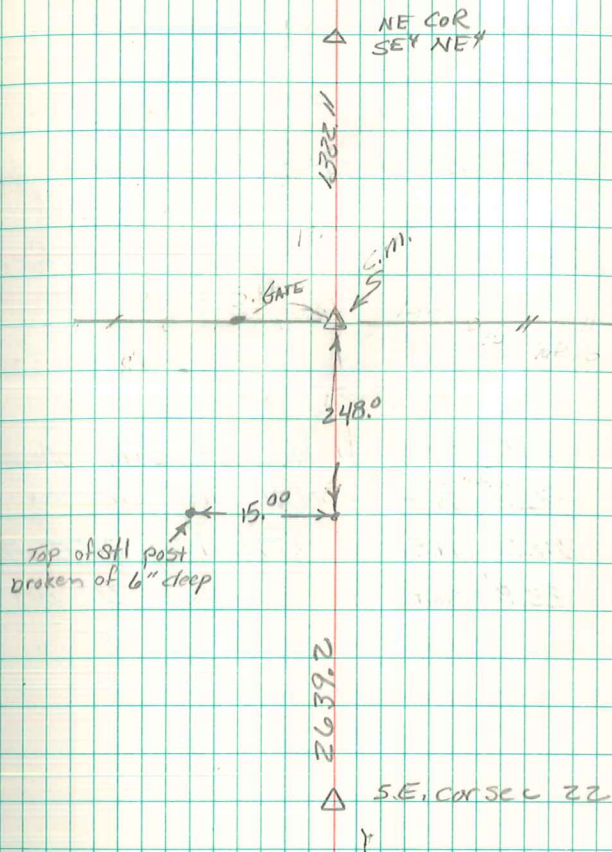 NE COR
SE¼ NE¼
1322.11
C.M.
GATE
248.0
15.00
Top of stl post
broken of 6" deep
2639.2
S.E. cor sec 22